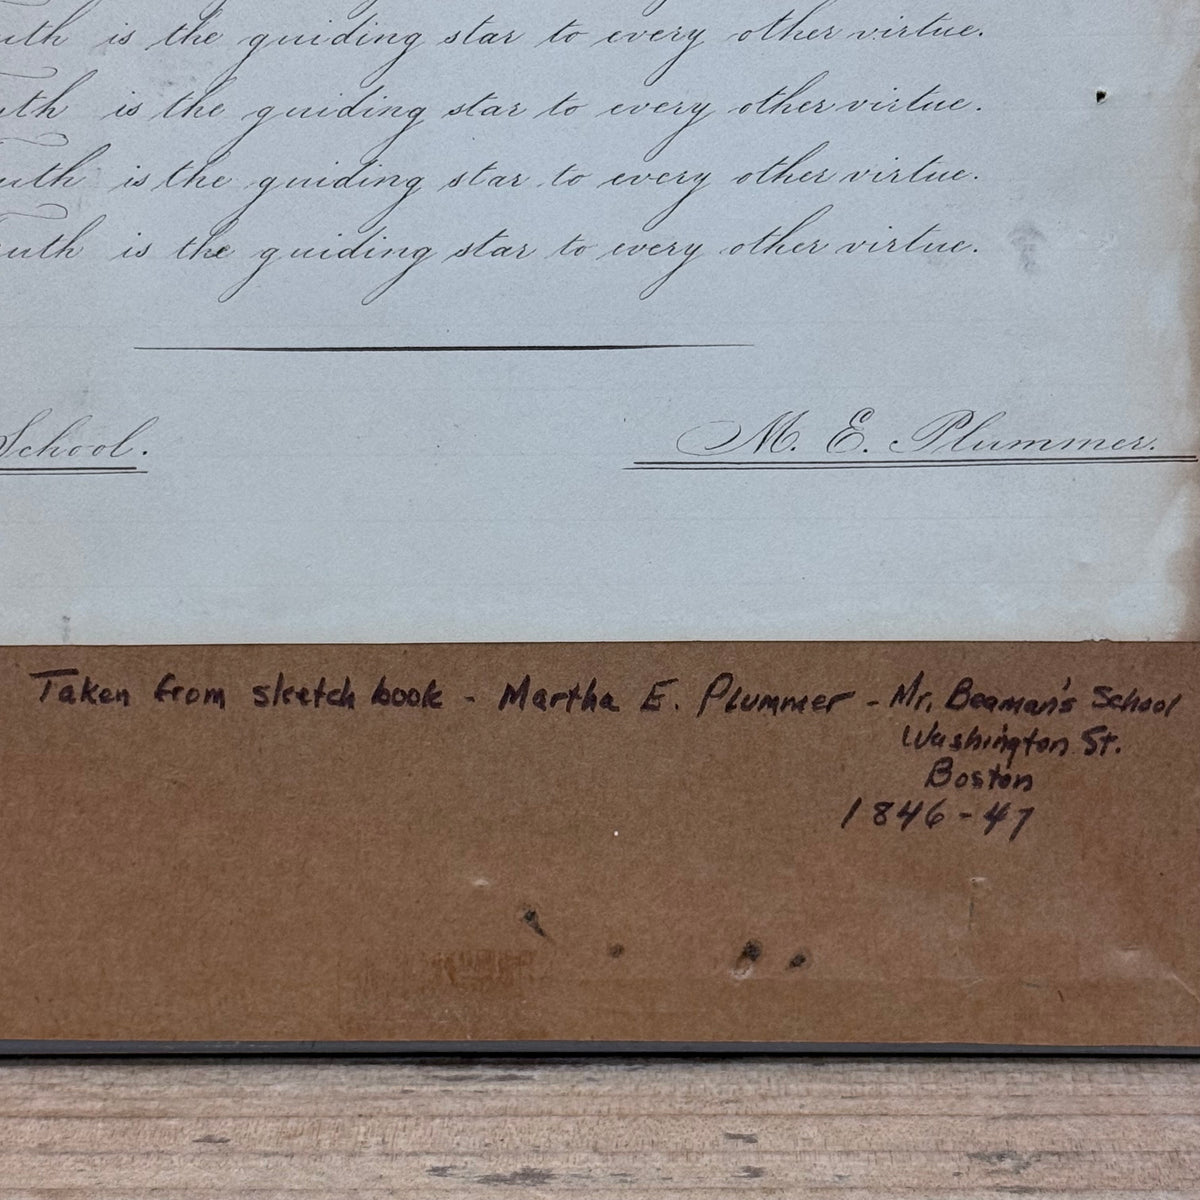 uth is the guiding star to every other virtue.
uth is the guiding star to every other virtue.
uth is the guiding star to every other virtue.
ruth is the guiding star to every other virtue.
School.
M. E. Plummer.
Taken from sketch book - Martha E. Plummer - Mr. Beaman's School
Washington St.
Boston
1846-47